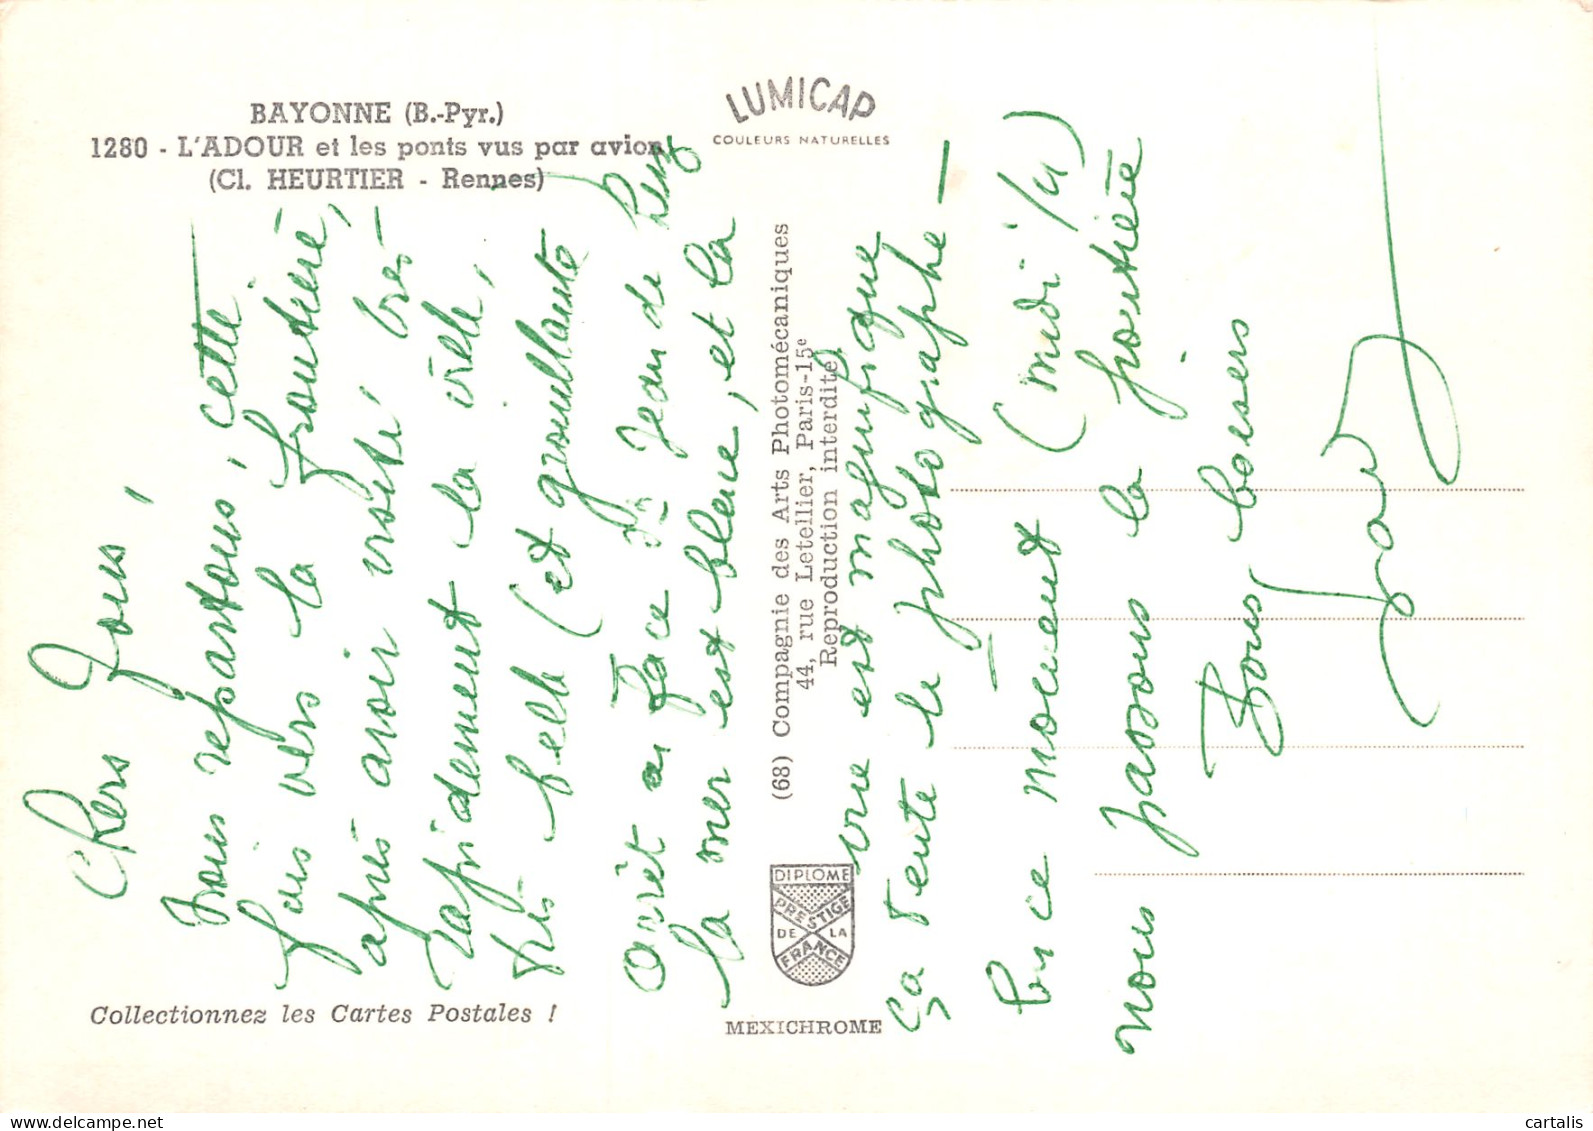 BAYONNE (B.-Pyr.)
1280 - L'ADOUR et les ponts vus par avion
(Cl. HEURTIER - Rennes)
LUMICAP
COULEURS NATURELLES
Chers Tous,
Nous repartons, cette
fois vers la frontière,
après avoir visité très
rapidement la ville,
très belle (et grouillante)
Arrêt en face St Jean de Luz
la mer est bleue, et la
vue est magnifique
ça tente le photographe —
En ce moment (midi 1/4)
nous passons la frontière
Bons baisers
(68) Compagnie des Arts Photomécaniques
44, rue Letellier, Paris-15e
Reproduction interdite
DIPLOME
PRESTIGE
DE LA
FRANCE
Collectionnez les Cartes Postales !
MEXICHROME
Delcampe.net
cartalis